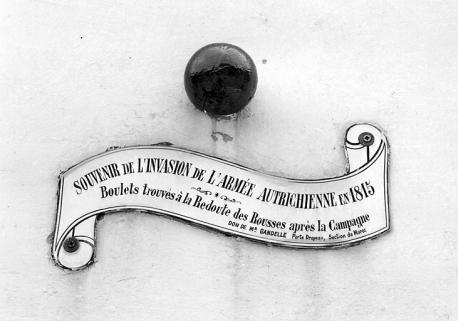 SOUVENIR DE L'INVASION DE L'ARMÉE AUTRICHIENNE EN 1815
Boulets trouvés à la Redoute des Rousses après la Campagne
DON DE Mr GANDELLE Porte Drapeau, Section de Morez